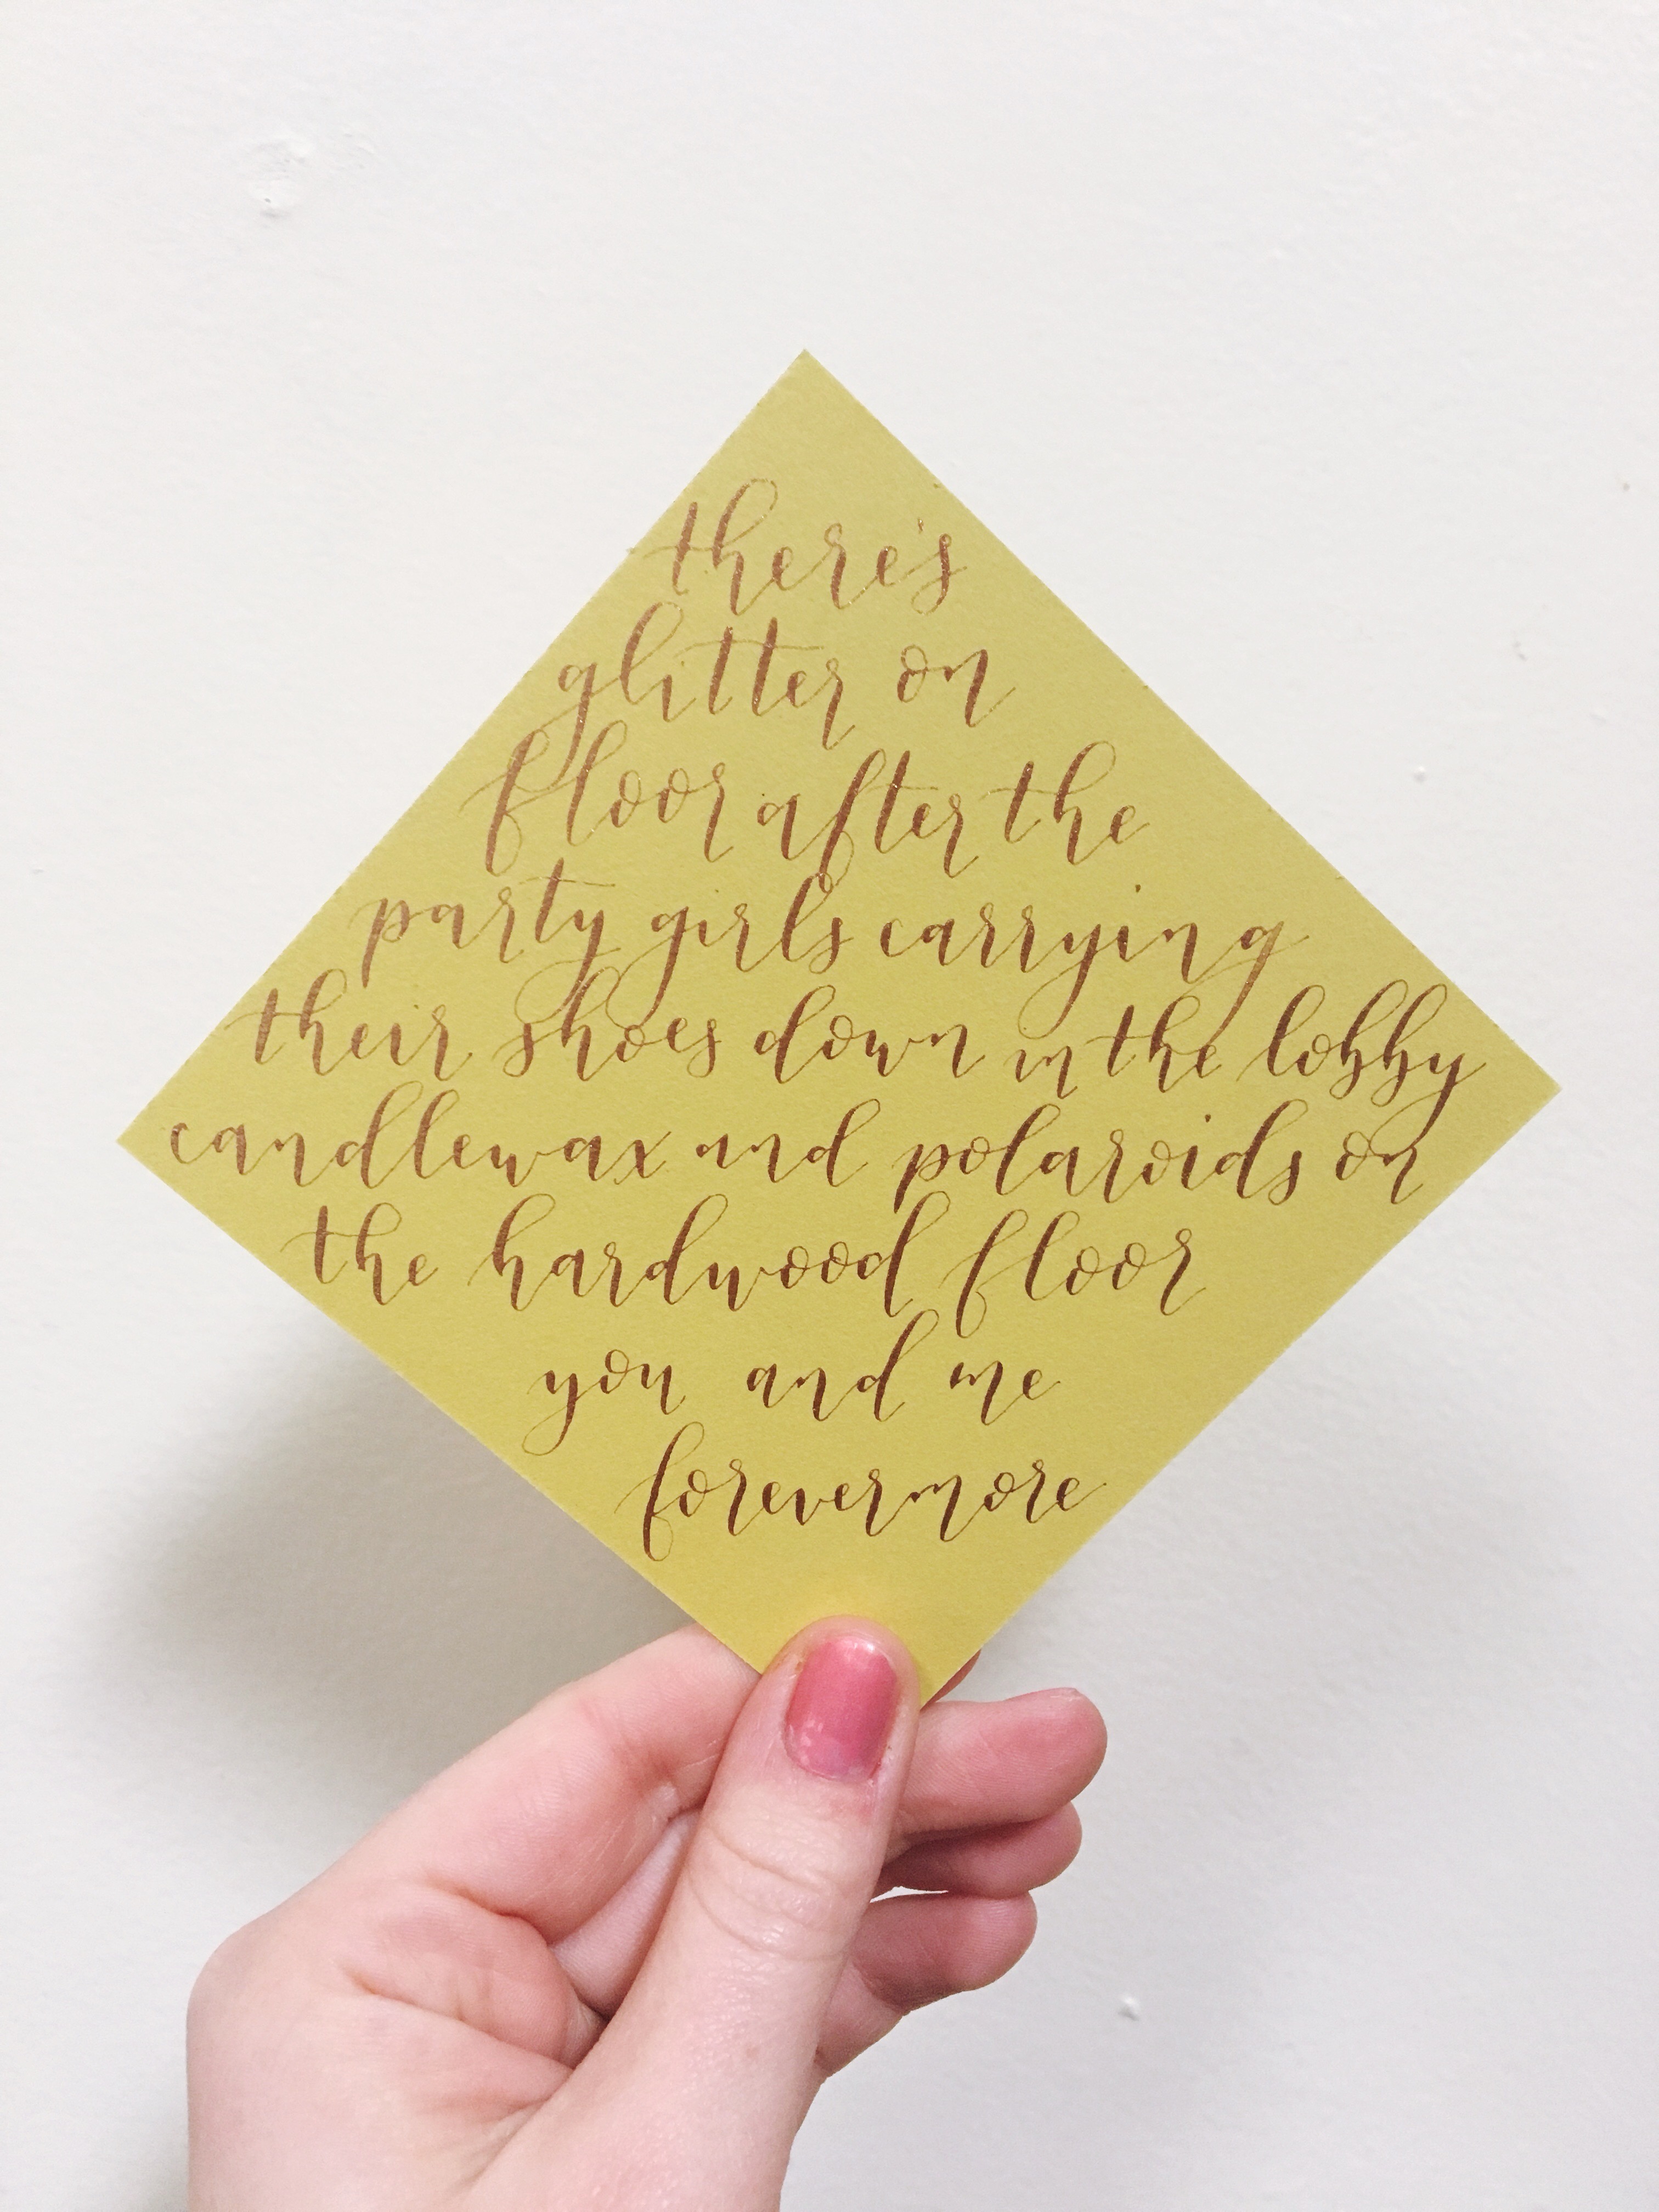 there's
glitter on
floor after the
party girls carrying
their shoes down in the lobby
candlewax and polaroids on
the hardwood floor
you and me
forevermore